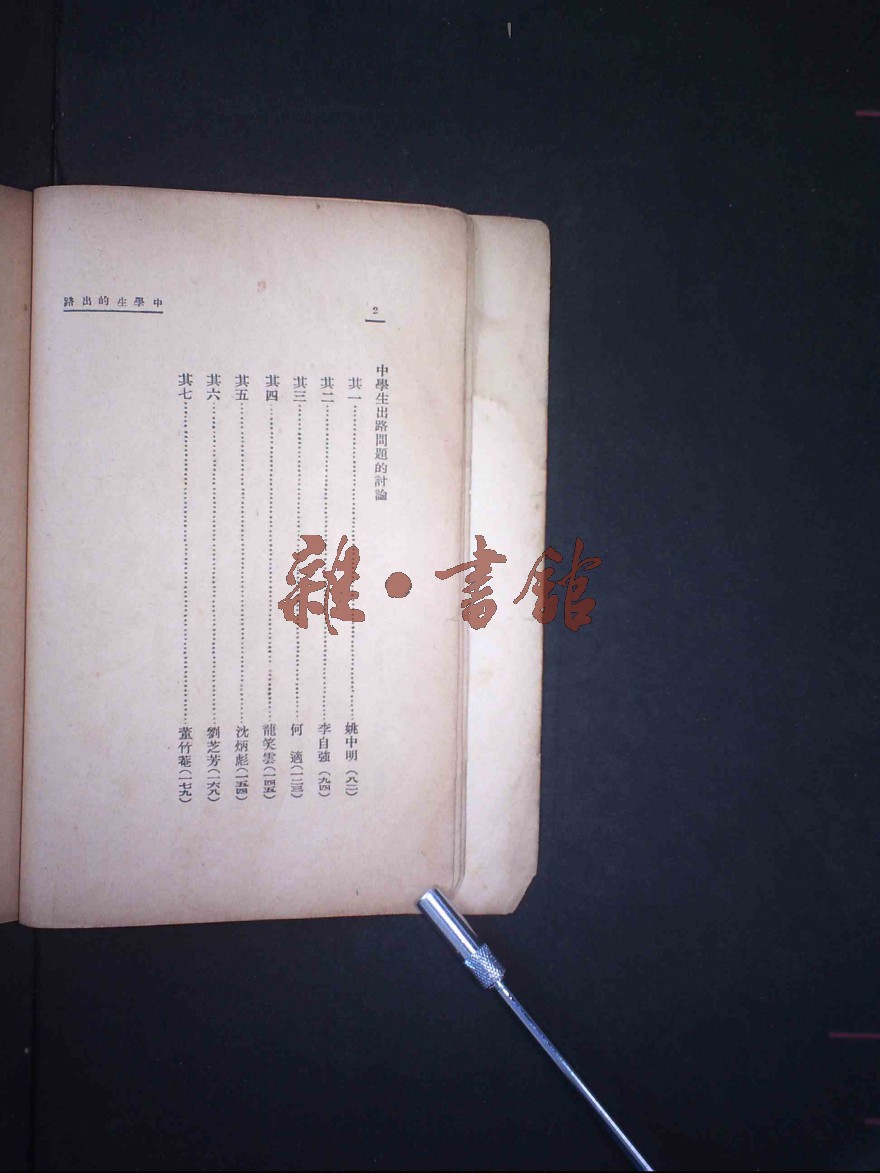 中學生的出路
2
中學生出路問題的討論
其一……姚中明(八二)
其二……李自強(九四)
其三……何 適(一二三)
其四……龍笑雲(一四五)
其五……沈炳彪(一五四)
其六……劉芝芳(一六八)
其七……董竹菴(一七九)
雜·書館